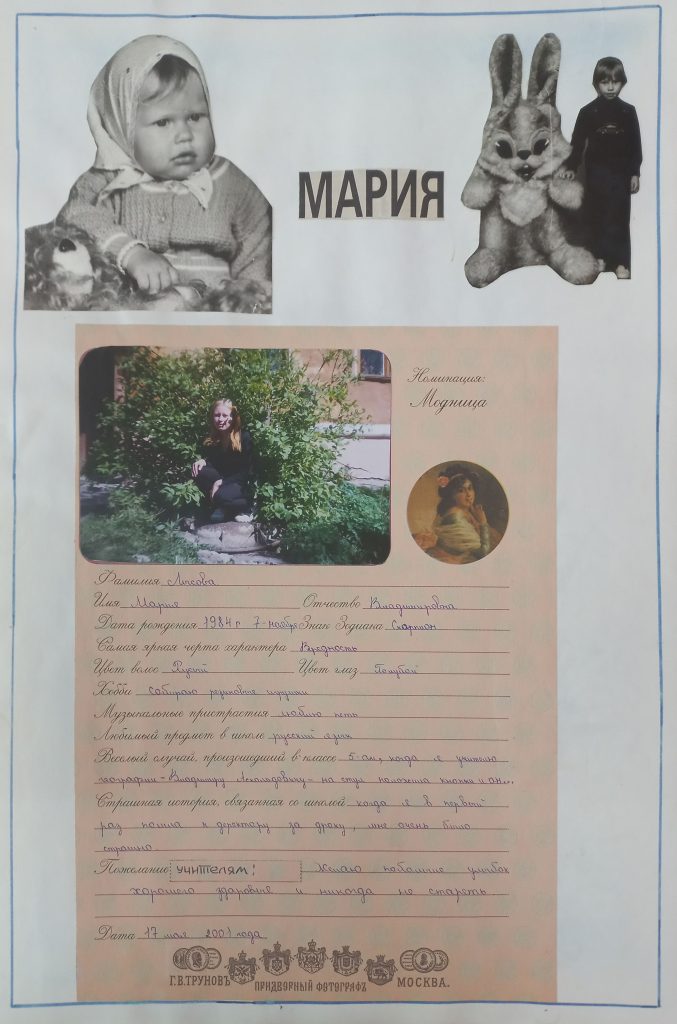 МАРИЯ
Номинация:
Модница
Фамилия Лысова
Имя Мария Отчество Владимировна
Дата рождения 1984 г 7 ноября Знак Зодиака Скорпион
Самая яркая черта характера Вредность
Цвет волос Русый Цвет глаз Голубой
Хобби собираю резиновые игрушки
Музыкальные пристрастия люблю петь
Любимый предмет в школе русский язык
Веселый случай, произошедший в классе 5 ом, когда я учителю
географии - Владимиру Аскольдовичу - на стул положила кнопки и он...
Страшная история, связанная со школой когда я в первый
раз пошла к деректору за драку, мне очень было
страшно.
Пожелание учителям! Желаю побольше улыбок
хорошего здоровие и никогда не стареть
Дата 17 мая 2001 года
Г.В.ТРУНОВЪ ПРИДВОРНЫЙ ФОТОГРАФЪ МОСКВА.